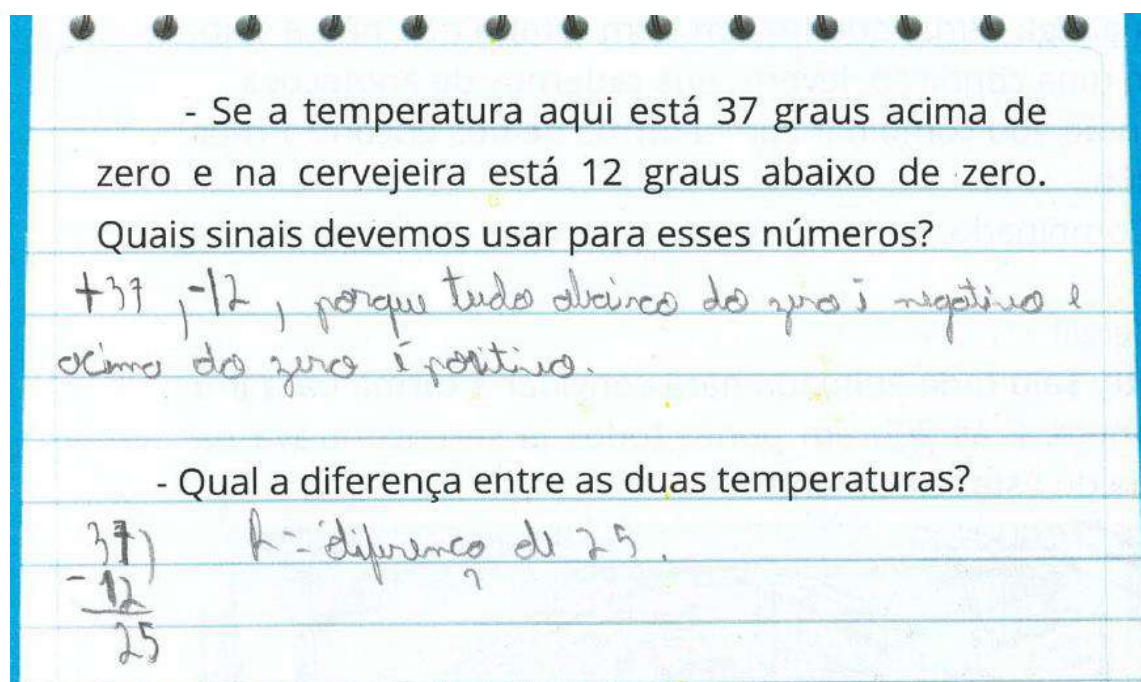 - Se a temperatura aqui está 37 graus acima de
zero e na cervejeira está 12 graus abaixo de zero.
Quais sinais devemos usar para esses números?
+37, -12, porque tudo abaixo do zero é negativo e
acima do zero é positivo.
- Qual a diferença entre as duas temperaturas?
37
R = diferença de 25.
- 12
25